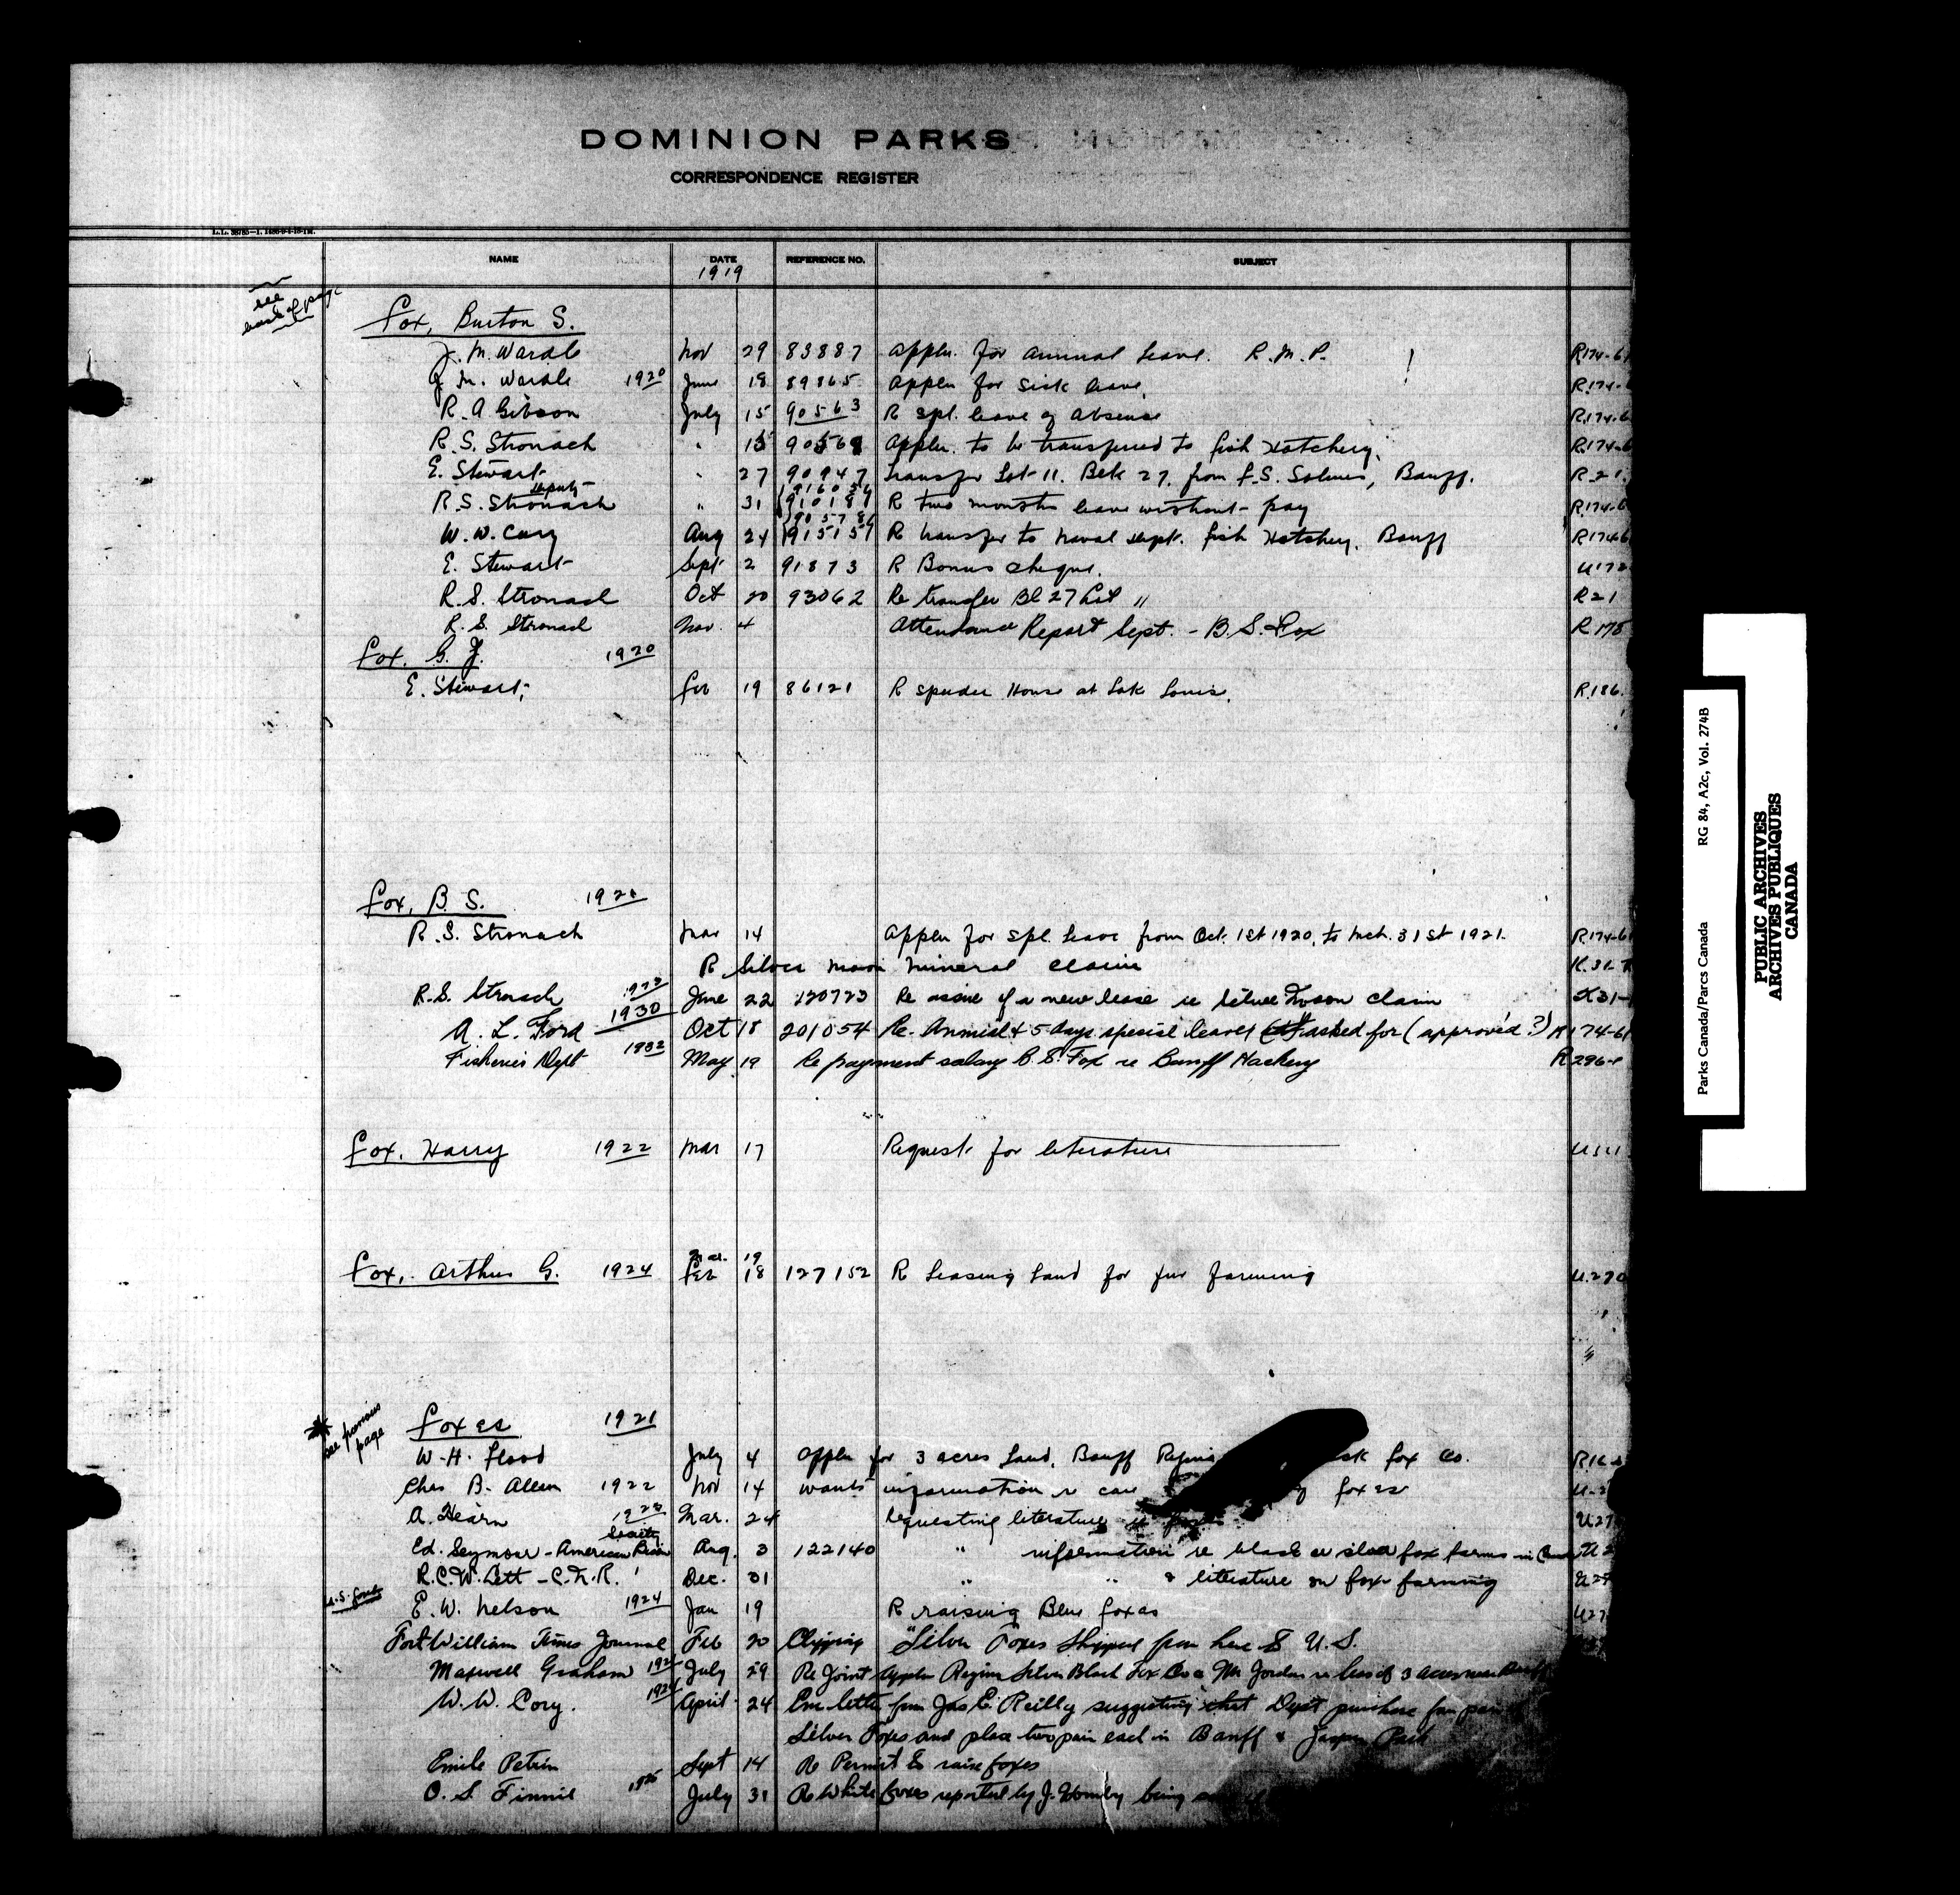 DOMINION PARKS
CORRESPONDENCE REGISTER
NAME DATE REFERENCE NO. SUBJECT
1919
see back of page
Fox, Burton S.
J. M. Wardle Nov 29 83887 Appln. for annual leave. R.M.P. R174-6
J. M. Wardle 1920 June 18 89865 Appln for sick leave R.174-
R. A Gibson July 15 90563 R spl. leave of absence R.174-6
R. S. Stronach " 15 90569 Appln. to be transferred to fish Hatchery. R.174-6
E. Stewart " 27 90947 Transfer Lot 11. Blk 27. from F.S. Solmes, Banff. R.21
R.S. Stronach Deputy " 31 R two months leave without pay R174-6
W. W. Cory Aug 24 91515 R transfer to Naval Dept. fish Hatchery. Banff R174-6
E. Stewart Sept 2 91873 R Bonus cheque.
R. S. Stronach Oct 20 93062 Re transfer Bl 27 Lot 11 R21
R. S. Stronach Nov. 4 Attendance Report Sept. - B. S. Fox R 178
Fox. G. J. 1920
E. Stewart, Feb 19 86121 R speeder House at Lake Louise. R.186.
Fox, B. S.
R. S. Stronach Mar 14 Appln for spl. leave from Oct. 1st 1920, to Mch. 31st 1921. R.174-6
R Silver Moon Mineral Claim
R. S. Stronach June 22 120723 Re issue of a new lease re Silver Moon claim
A. L. Ford 1930 Oct 18 201054 Re. Annual & 5 days special leave asked for (approved?) R174-61
Fisheries Dept 1932 May 19 Re payment salary B. S. Fox re Banff Hatchery R296-1
Fox, Harry 1922 Mar 17 Request for literature
Fox, Arthur G. 1924 Feb 18 127152 R Leasing Land for fur farming U.270
Mar. 19
see previous page
Foxes 1921
W. H. Flood July 4 Appln for 3 acres Land, Banff Regina fox Co.
Chas B. Allen 1922 Nov 14 wants information re care foxes
A. Hearn Mar. 24 Requesting literature re
Ed. Seymour - American Bison Society Aug. 3 122140 " information re black or silver fox farms in
R.C.W. Lett - C.N.R. Dec. 31 " " & literature on fox farming
U.S. Govt E. W. Nelson 1924 Jan 19 R raising Blue foxes
Fort William Times Journal Feb 20 Clipping "Silver Foxes shipped from here to U.S.
Maxwell Graham July 29 Re Joint Appln Regina Silver Black Fox Co & Jordan re lease of 3 acres near Banff
W. W. Cory. April 24 letter from Jas E. Reilly suggesting that Dept purchase four pair
Silver Foxes and place two pair each in Banff & Jasper Park
Emile Petrin Sept 14 Re Permit to raise foxes
O. S. Finnie July 31 Re White foxes reported by J. Hornby being
Parks Canada/Parcs Canada RG 84, A2c, Vol. 274B
PUBLIC ARCHIVES
ARCHIVES PUBLIQUES
CANADA